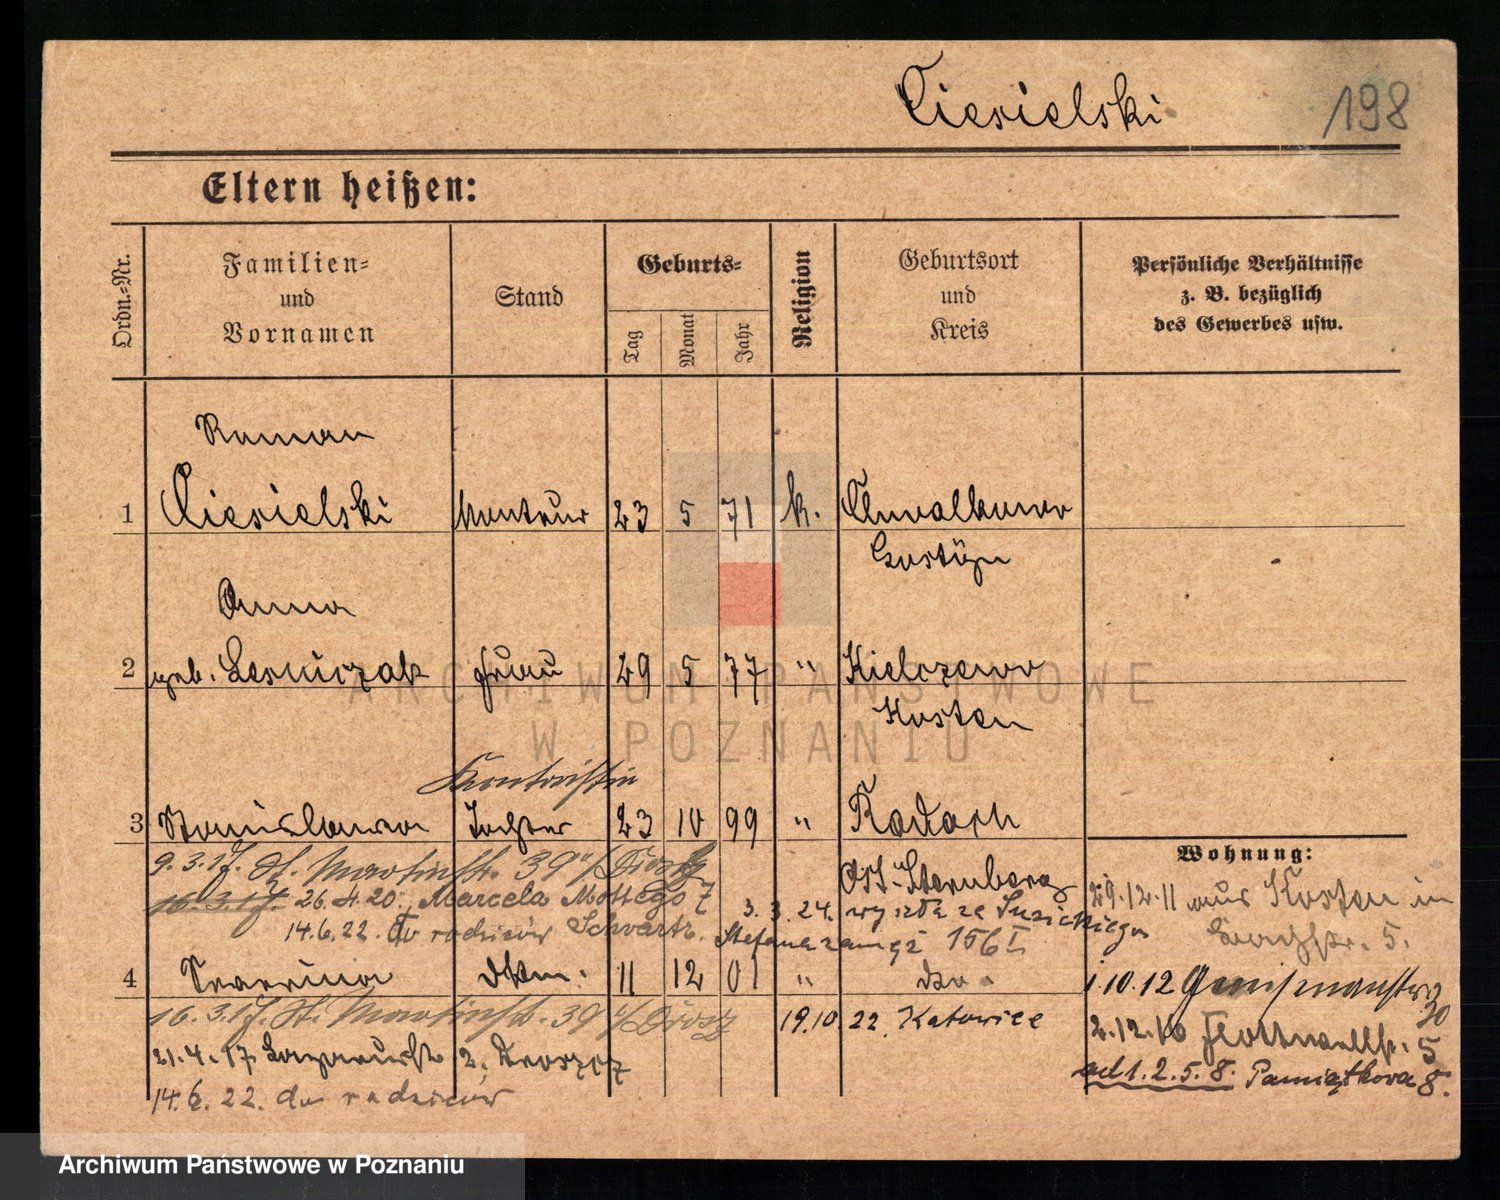 Ciesielski 198
Eltern heißen:
Ordn.=Nr. Familien= und Vornamen Stand Geburts= Tag Monat Jahr Religion Geburtsort und Kreis Persönliche Verhältnisse z. B. bezüglich des Gewerbes usw.
Roman
1 Ciesielski Monteur 23 5 71 k. Chwalkowo
Gostÿn
Anna
2 geb. Lesniczak Frau 29 5 77 " Kielczewo
Kosten
Kontoristin
3 Stanislawa Tochter 23 10 99 " Radach
Wohnung:
9.3.17. St. Martinstr. 39 Ost-Sternberg
29.12.11 aus Kosten in
16.3.17. 26.4.20. Marcela Mottego 7 3.3.24. wyszła za
14.6.22. do rodziców Schvartz. Stefana zamęż 156 I
str. 5.
4 dto. 11 12 01 " dto.
1.10.12
16.3.17. St. Martinstr. 39 19.10.22. Katowice
30
2.12.16 5
21.4.17. 2.
ad 1.2.5.8. Pamiątkowa 8.
14.6.22. do rodziców
ARCHIWUM PAŃSTWOWE
W POZNANIU
Archiwum Państwowe w Poznaniu